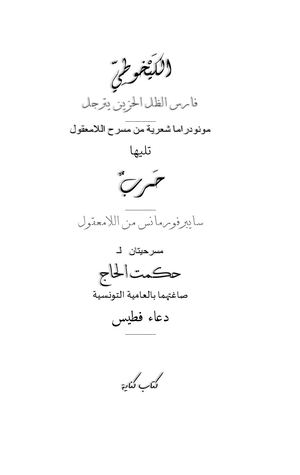 الكَيْخوطيّ
فارس الظل الحزين يترجل
مونودراما شعرية من مسرح اللامعقول
تليها
حَربٌ
سايبرفورمانس من اللامعقول
مسرحيتان لـ
حكمت الحاج
صاغتهما بالعامية التونسية
دعاء فطيس
كتاب كناية